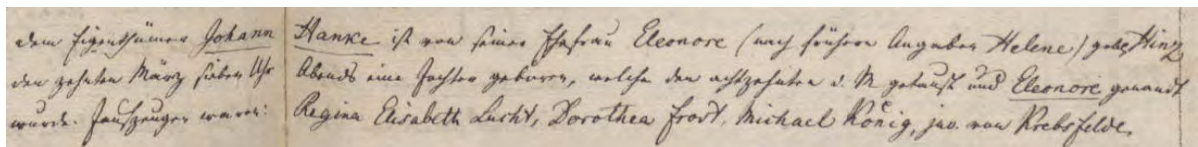 dem Eigenthümer Johann Hanke ist von seiner Ehefrau Eleonore (nach frühern Angaben Helene) geb. Hinz
den zehnten März sieben Uhr Abends eine Tochter geboren, welche den achtzehnten d. M getauft und Eleonore genandt
wurde. Taufzeugen waren: Regina Elisabeth Lucht, Dorothea Frost, Michael König, jun. von Krebsfelde.